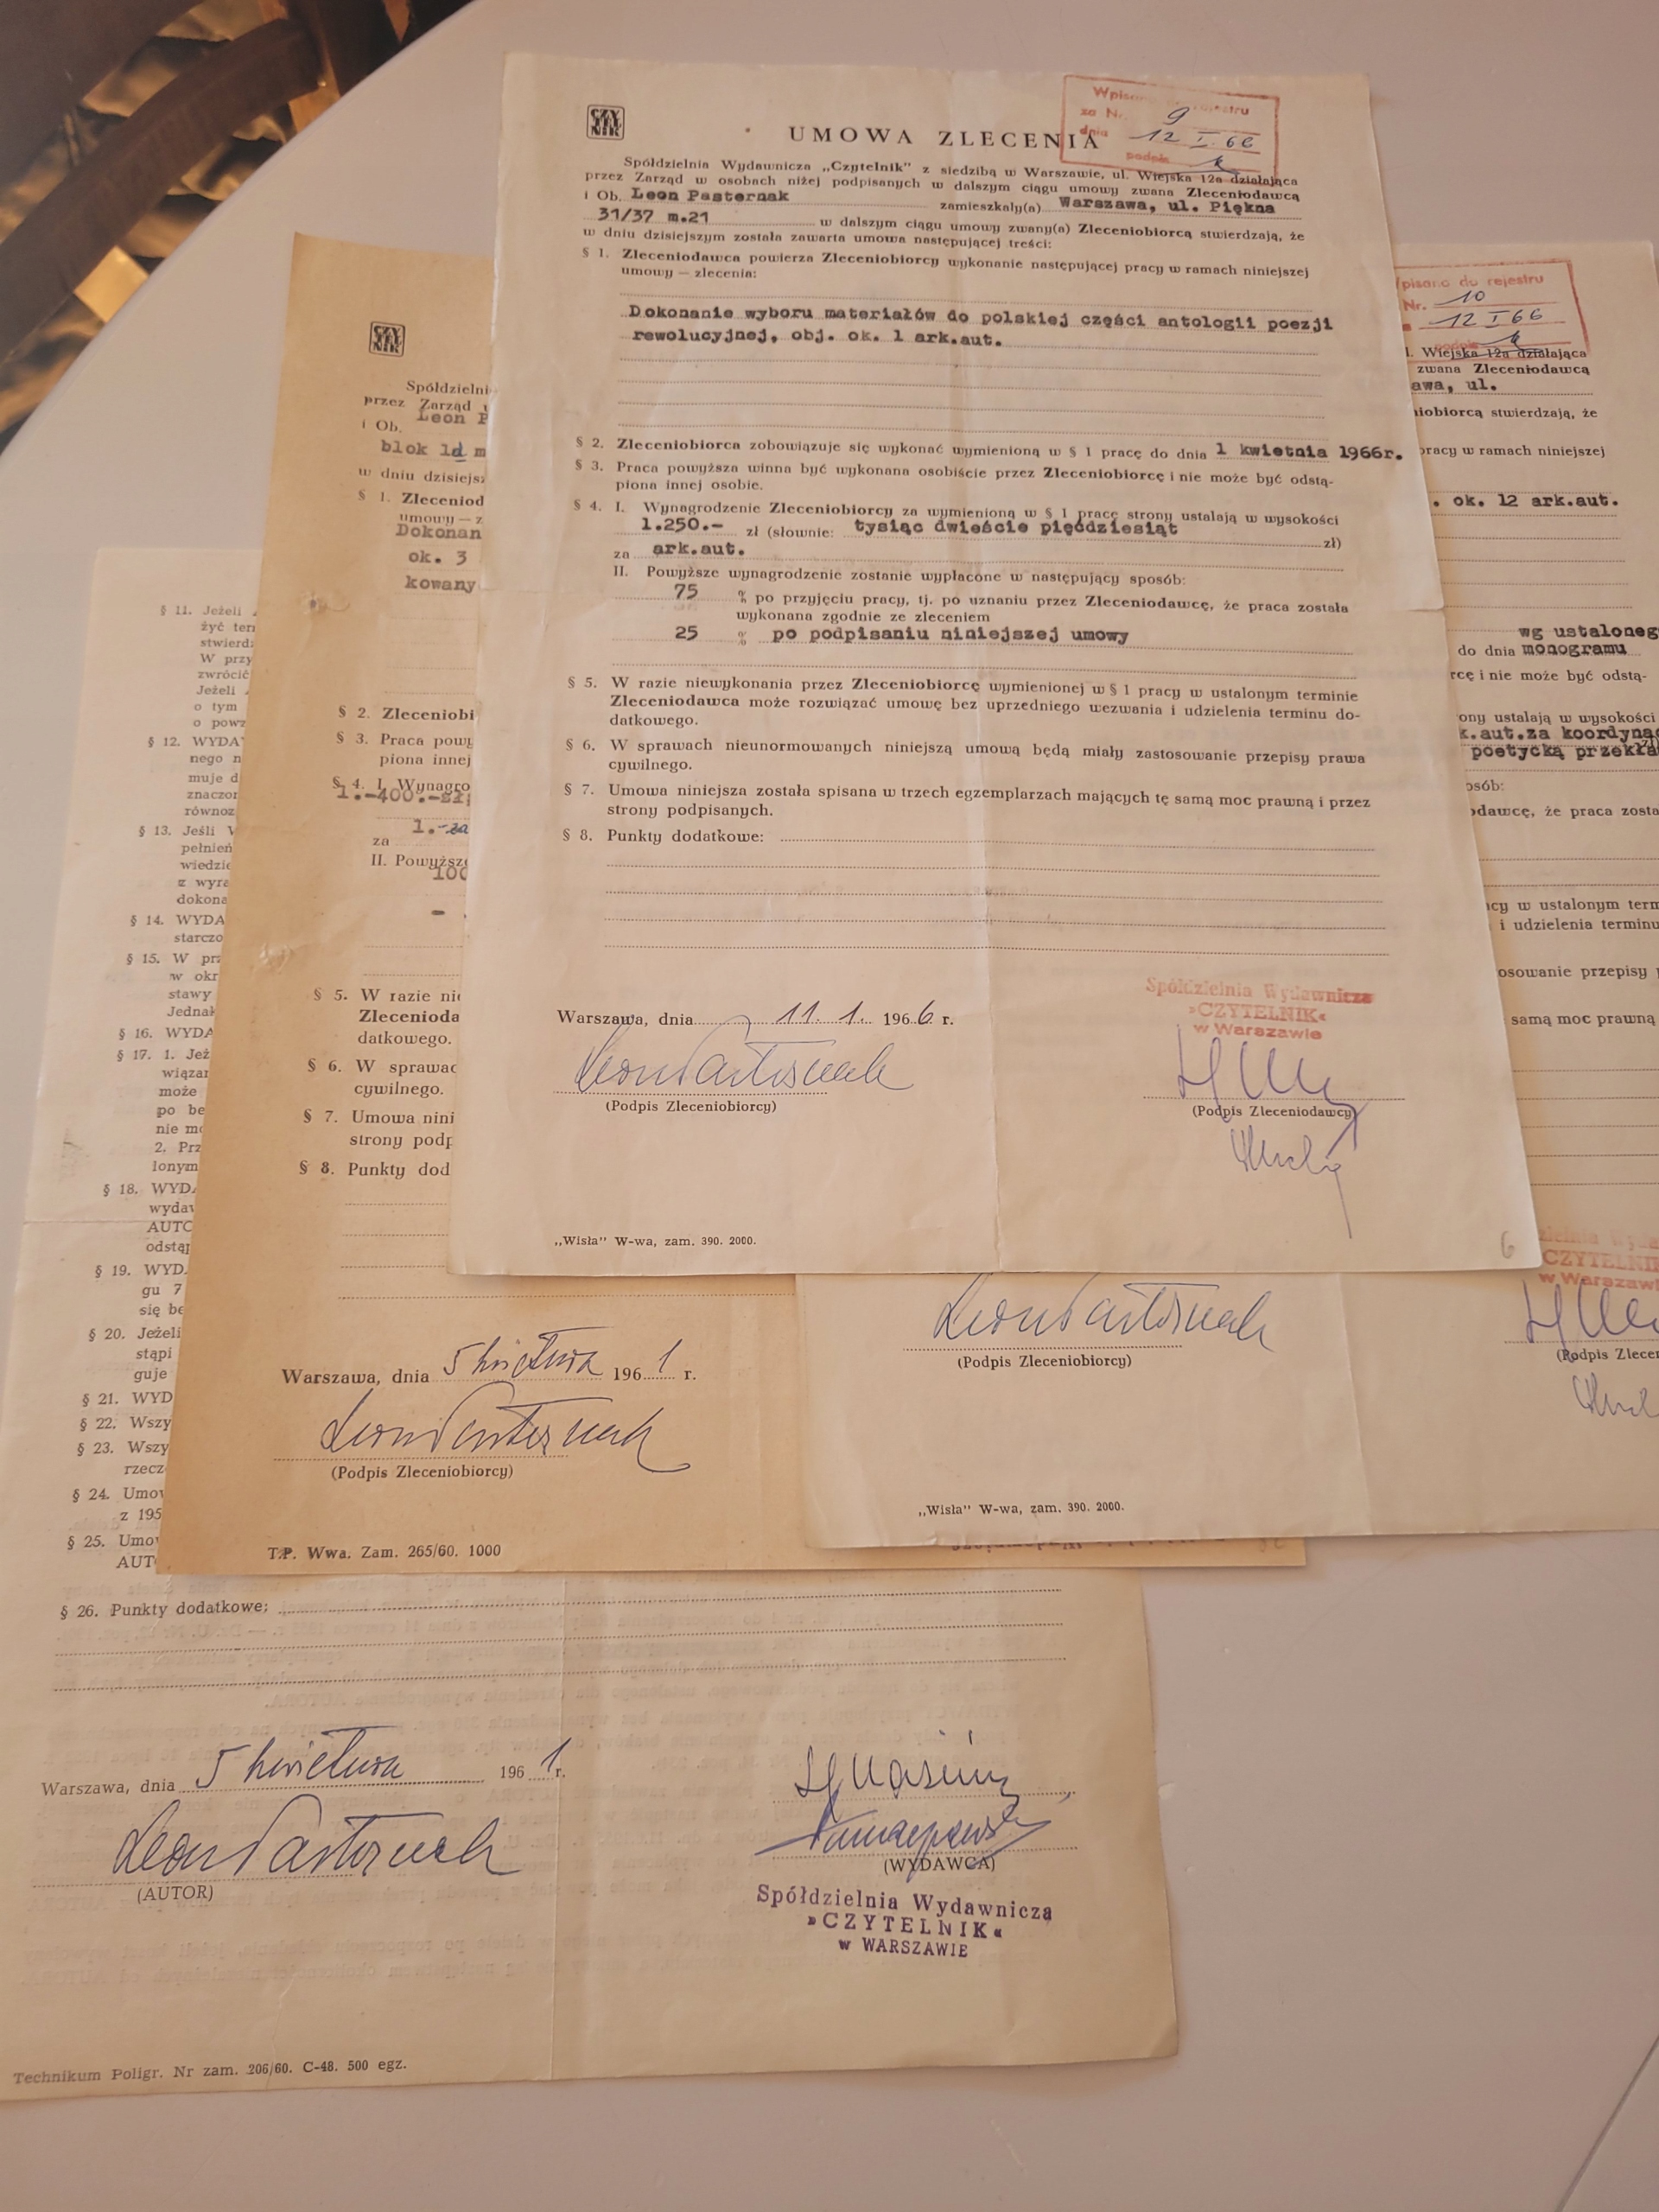 CZY
TEL
NIK
UMOWA ZLECENIA
Wpisano rejestru
za Nr. 9
dnia 12 I. 66
podpis
Spółdzielnia Wydawnicza „Czytelnik” z siedzibą w Warszawie, ul. Wiejska 12a działająca
przez Zarząd w osobach niżej podpisanych w dalszym ciągu umowy zwana Zleceniodawcą
i Ob. Leon Pasternak zamieszkały(a) Warszawa, ul. Piękna
31/37 m.21 w dalszym ciągu umowy zwany(a) Zleceniobiorcą stwierdzają, że
w dniu dzisiejszym została zawarta umowa następującej treści:
§ 1. Zleceniodawca powierza Zleceniobiorcy wykonanie następującej pracy w ramach niniejszej
umowy — zlecenia:
Dokonanie wyboru materiałów do polskiej części antologii poezji
rewolucyjnej, obj. ok. 1 ark.aut.
§ 2. Zleceniobiorca zobowiązuje się wykonać wymienioną w § 1 pracę do dnia 1 kwietnia 1966r.
§ 3. Praca powyższa winna być wykonana osobiście przez Zleceniobiorcę i nie może być odstą-
piona innej osobie.
§ 4. I. Wynagrodzenie Zleceniobiorcy za wymienioną w § 1 pracę strony ustalają w wysokości
1.250.— zł (słownie: tysiąc dwieście pięćdziesiąt zł)
za ark.aut.
II. Powyższe wynagrodzenie zostanie wypłacone w następujący sposób:
75 % po przyjęciu pracy, tj. po uznaniu przez Zleceniodawcę, że praca została
wykonana zgodnie ze zleceniem
25 % po podpisaniu niniejszej umowy
§ 5. W razie niewykonania przez Zleceniobiorcę wymienionej w § 1 pracy w ustalonym terminie
Zleceniodawca może rozwiązać umowę bez uprzedniego wezwania i udzielenia terminu do-
datkowego.
§ 6. W sprawach nieunormowanych niniejszą umową będą miały zastosowanie przepisy prawa
cywilnego.
§ 7. Umowa niniejsza została spisana w trzech egzemplarzach mających tę samą moc prawną i przez
strony podpisanych.
§ 8. Punkty dodatkowe:
Warszawa, dnia 11. 1. 1966 r.
Leon Pasternak
(Podpis Zleceniobiorcy)
Spółdzielnia Wydawnicza
»CZYTELNIK«
w Warszawie
(Podpis Zleceniodawcy)
„Wisła” W-wa, zam. 390. 2000.
6
Wpisano do rejestru
Nr. 10
12 I 66
l. Wiejska 12a działająca
zwana Zleceniodawcą
awa, ul.
niobiorcą stwierdzają, że
pracy w ramach niniejszej
. ok. 12 ark.aut.
wg ustaloneg
do dnia monogramu
rcę i nie może być odstą-
ony ustalają w wysokości
k.aut.za koordynac
poetycką przekła
osób:
odawcę, że praca zosta
acy w ustalonym term
i udzielenia terminu
osowanie przepisy p
samą moc prawną
Leon Pasternak
(Podpis Zleceniobiorcy)
zielnia Wyda
CZYTELNIK
w Warszawi
(Podpis Zlecen
„Wisła” W-wa, zam. 390. 2000.
CZY
TEL
NIK
Spółdzielni
przez Zarząd
i Ob. Leon P
blok 1d m
w dniu dzisiejs
§ 1. Zleceniod
umowy — z
Dokonan
ok. 3
kowany
§ 2. Zleceniobi
§ 3. Praca powy
piona innej
§ 4. I. Wynagro
1.-400.-zł
za 1.-za
II. Powyższe
100
§ 5. W razie nie
Zlecenioda
datkowego.
§ 6. W sprawac
cywilnego.
§ 7. Umowa nini
strony podp
§ 8. Punkty dod
Warszawa, dnia 5 kwietnia 1961 r.
Leon Pasternak
(Podpis Zleceniobiorcy)
T.P. Wwa. Zam. 265/60. 1000
§ 11. Jeżeli
żyć ter
stwierdz
W przy
zwrócić
Jeżeli
o tym
o powz
§ 12. WYDA
nego n
muje d
znaczor
równoz
§ 13. Jeśli
pełnień
wiedzie
z wyra
dokona
§ 14. WYDA
starczo
§ 15. W prz
w okr
stawy
Jednak
§ 16. WYDA
§ 17. 1. Jeż
wiązan
może
po be
nie mo
2. Prz
lonym
§ 18. WYDA
wydaw
AUTO
odstąp
§ 19. WYD
gu 7
się be
§ 20. Jeżeli
stąpi
guje
§ 21. WYD
§ 22. Wszy
§ 23. Wszy
rzecz
§ 24. Umow
z 195
§ 25. Umo
AUT
§ 26. Punkty dodatkowe:
Warszawa, dnia 5 kwietnia 1961 r.
Leon Pasternak
(AUTOR)
(WYDAWCA)
Spółdzielnia Wydawnicza
»CZYTELNIK«
w WARSZAWIE
Technikum Poligr. Nr zam. 206/60. C-48. 500 egz.